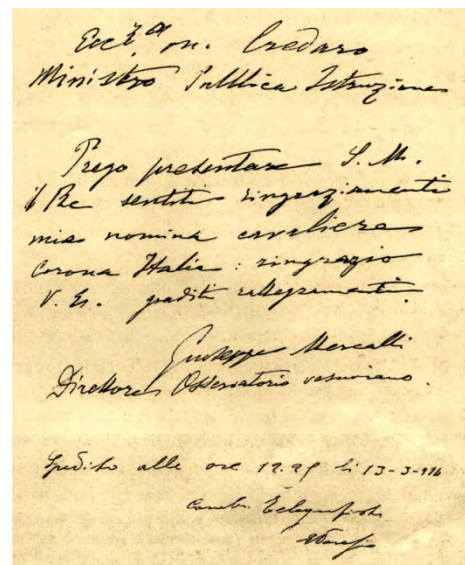 Ecc.za on. Credaro
Ministro Pubblica Istruzione
Prego presentare S. M.
il Re sentiti ringraziamenti
mia nomina cavaliere
Corona Italia: ringrazio
V. Ec. graditi rallegramenti.
Giuseppe Mercalli
Direttore Osservatorio vesuviano.
Spedito alle ore 12.25 li 13-3-914